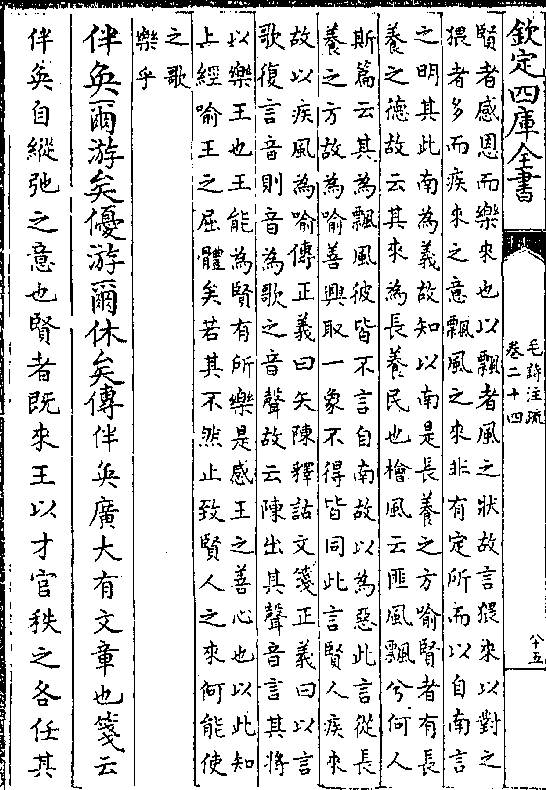 欽定四庫全書
毛詩注疏
卷二十四
八十五
賢者感恩而樂來也以飄者風之狀故言猥來以對之
猥者多而疾來之意飄風之來非有定所而以自南言
之明其此南為義故知以南是長養之方喻賢者有長
養之德故云其來為長養民也檜風云匪風飄兮何人
斯篇云其為飄風彼皆不言自南故以為惡此言從長
養之方故為喻善興取一象不得皆同此言賢人疾來
故以疾風為喻傳正義曰矢陳釋詁文箋正義曰以言
歌復言音則音為歌之音聲故云陳出其聲音言其將
以樂王也王能為賢有所樂是感王之善心也以此知
上經喻王之屈體矣若其不然止致賢人之來何能使
之歌
樂乎
伴奐爾游矣優游爾休矣傳伴奐廣大有文章也箋云
伴奐自縱弛之意也賢者既來王以才官秩之各任其